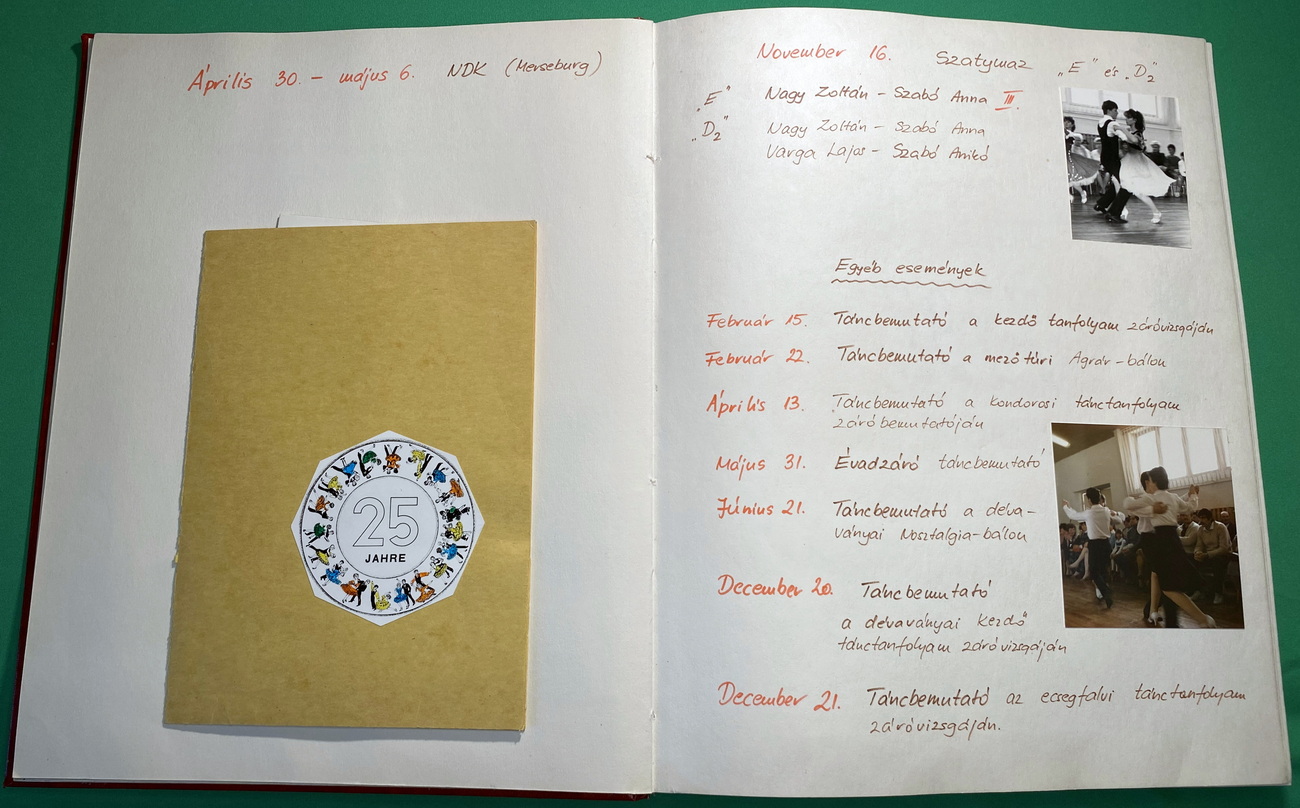 Április 30. – május 6. NDK (Merseburg)
25
JAHRE
November 16. Szatymaz „E" és „D2"
„E" Nagy Zoltán – Szabó Anna III.
„D2" Nagy Zoltán – Szabó Anna
Varga Lajos – Szabó Anikó
Egyéb események
Február 15. Táncbemutató a kezdő tanfolyam záróvizsgáján
Február 22. Táncbemutató a mezőtúri Agrár-bálon
Április 13. Táncbemutató a kondorosi tánctanfolyam
záróbemutatóján
Május 31. Évadzáró táncbemutató
Június 21. Táncbemutató a déva-
ványai Nosztalgia-bálon
December 20. Táncbemutató
a dévaványai kezdő
tánctanfolyam záróvizsgáján
December 21. Táncbemutató az ecsegfalvi tánctanfolyam
záróvizsgáján.